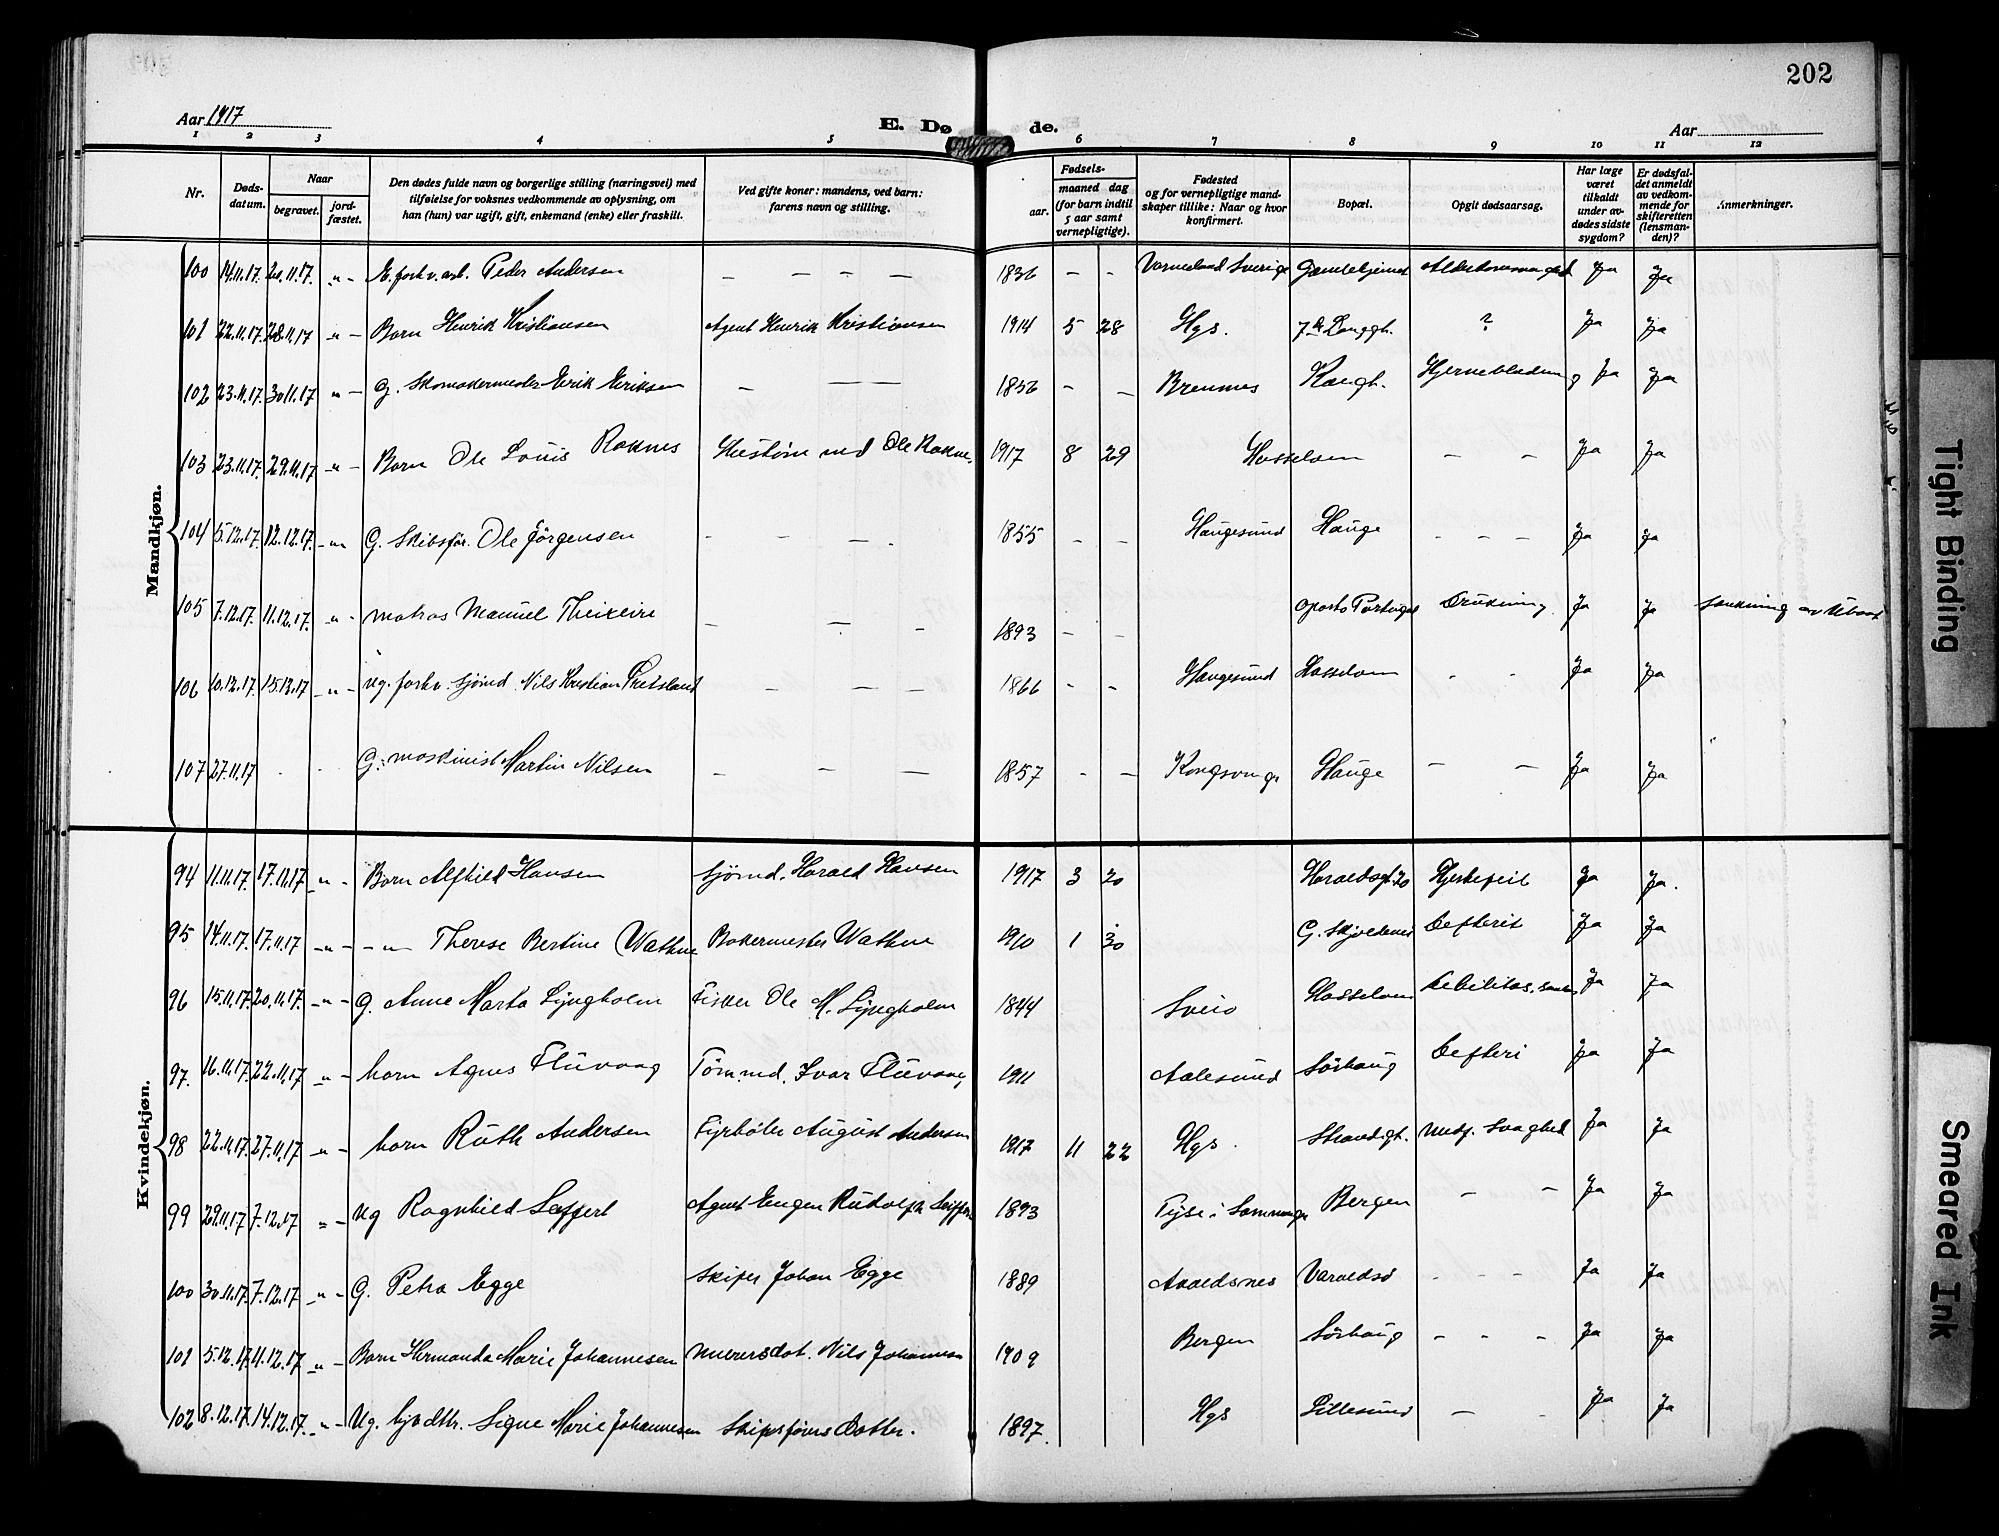 202
Aar 1917
E. Døde.
Aar
1 2 3 4 5 6 7 8 9 10 11 12
Nr.
Døds-
datum.
Naar
begravet.
jord-
fæstet.
Den dødes fulde navn og borgerlige stilling (næringsvei) med
tilføielse for voksnes vedkommende av oplysning, om
han (hun) var ugift, gift, enkemand (enke) eller fraskilt.
Ved gifte koner: mandens, ved barn:
farens navn og stilling.
Fødsels-
aar.
maaned dag
(for barn indtil
5 aar samt
vernepligtige).
Fødested
og for vernepligtige mand-
skaper tillike: Naar og hvor
konfirmert.
Bopæl.
Opgit dødsaarsag.
Har læge
været
tilkaldt
under av-
dødes sidste
sygdom?
Er dødsfal-
det anmeldt
av vedkom-
mende for
skifteretten
(lensman-
den)?
Anmerkninger.
Mandkjøn.
100 14.11.17. 20.11.17. „ – E. forhv. arb. Peder Andersen – – – – 1836 – – Varmeland Sverige Gamlehjemmet Alderdomssvaghed Ja Ja
101 22.11.17. 28.11.17 „ – Barn Henrik Kristiansen Agent Henrik Kristiansen 1914 5 28 Hgs. ? Ja Ja
102 23.11.17. 30.11.17 „ – G. Skomakermester Eirik Eriksen – – – – 1856 – – Bremnes Hjerneblødning Ja Ja
103 23.11.17. 29.11.17 „ – Barn Ole Louis Roknes Ole Rokne 1917 8 29 Hasseløen – – Ja Ja
104 5.12.17. 12.12.17. „ G. Skibsfør. Ole Jørgensen – – – 1855 – – Haugesund Hauge – – – Ja Ja
105 7.12.17. 11.12.17. „ – matros Manuel Theixeire – – – 1893 – – Oporto Portugal Drukning Ja Ja Sænkning av Ubaat
106 10.12.17. 15.12.17 „ – Ug. forhv. sjømd. Nils Kristian – – – 1866 – – Haugesund Hasseløen – – Ja Ja
107 27.11.17 G. maskinist Martin Nilsen – – – 1857 – – Kongsvinger Hauge – – Ja Ja
Kvindekjøn.
94 11.11.17. 17.11.17 „ – Barn Alfhild Hansen sjømd. Harald Hansen 1917 3 20 Haraldsgt. 20 Hjertefeil Ja Ja.
95 14.11.17. 17.11.17 „ – – „ – Therese Bertine Wathne Bakermester Wathne 1910 1 30 Defterit Ja Ja
96 15.11.17. 20.11.17. „ – G. Anne Marta Lyngholm Fisker Ole M. Lyngholm 1844 Sveio Hasseløen Debilitas. Ja Ja
97. 16.11.17. 22.11.17 „ – barn Agnes Fluvaag Tømmd. Ivar Fluvaag 1911 Aalesund Sörhaug Defteri Ja Ja
98 22.11.17 27.11.17 „ – barn Ruth Andersen Fyrbøter August Andersen 1917 11 22 Hgs. Strandgt. Medf. Svaghed Ja Ja
99 29.11.17 7.12.17 „ – Ug Ragnhild Seffert Agent Eugen Rudolph 1893 Bergen – – Ja Ja
100 30.11.17. 7.12.17 „ – G. Petra Egge Skiper Johan Egge 1889 Avaldsnes Varaldsö – – – Ja Ja
101 5.12.17 11.12.17 „ – Barn Hermanda Marie Johannesen Murersdat. Nils Johannesen 1909 Bergen Sörhaug – – – Ja Ja
102 8.12.17. 14.12.17. „ – Ug. Signe Marie Johannesen Skipsførers Datter. 1897. Hgs Lillesund – – Ja Ja
Tight Binding
Smeared Ink